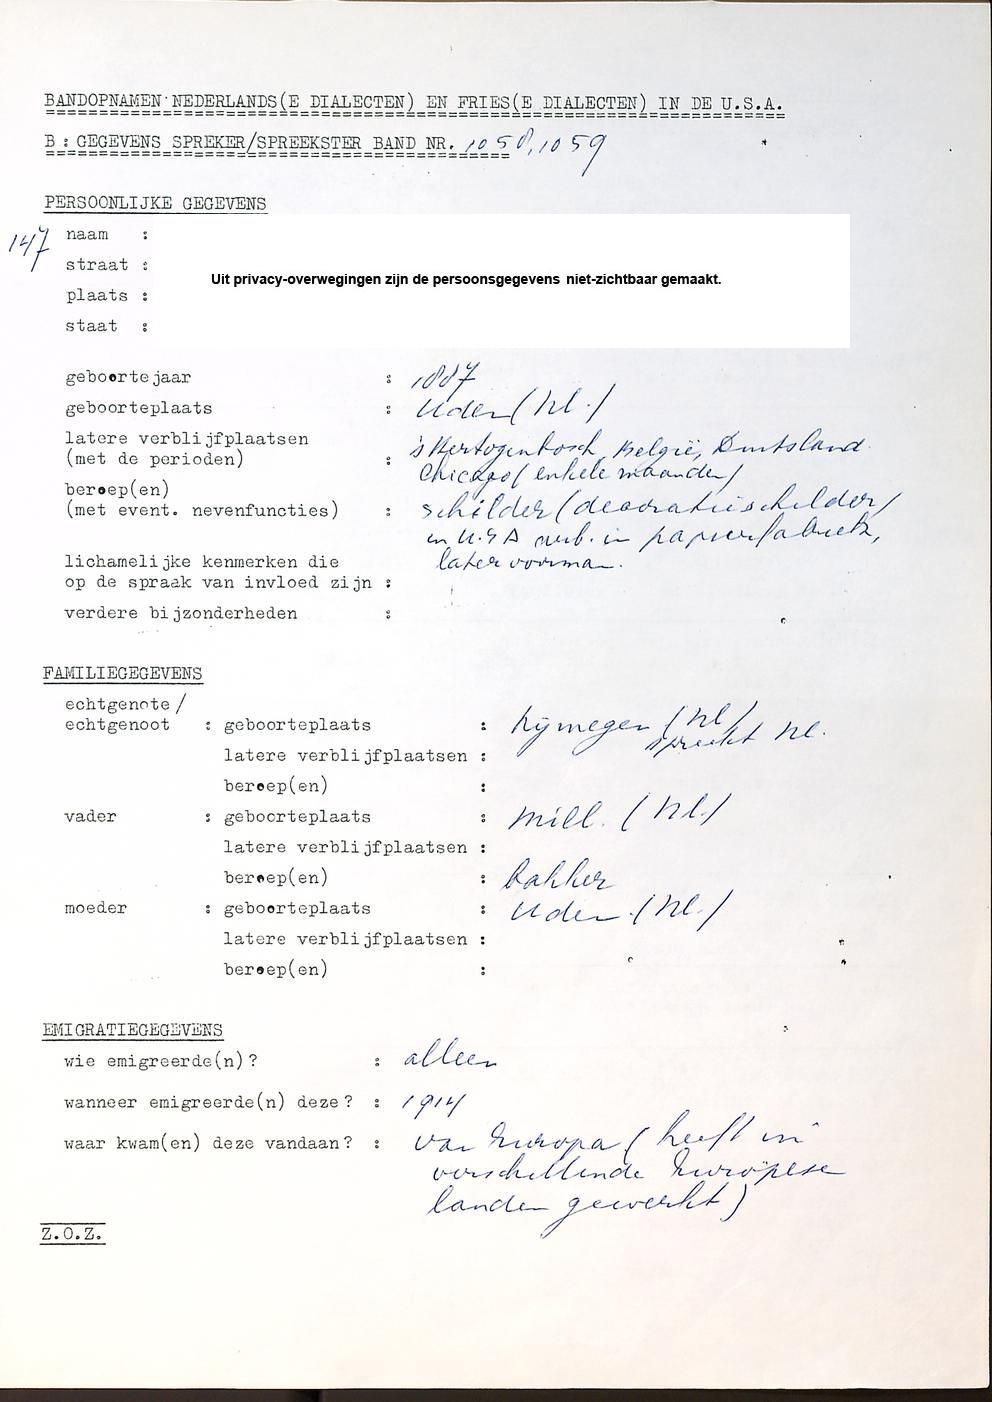 BANDOPNAMEN NEDERLANDS(E DIALECTEN) EN FRIES(E DIALECTEN) IN DE U.S.A.
B: GEGEVENS SPREKER/SPREEKSTER BAND NR. 1058, 1059
PERSOONLIJKE GEGEVENS
147
naam :
straat :
Uit privacy-overwegingen zijn de persoonsgegevens niet-zichtbaar gemaakt.
plaats :
staat :
geboortejaar : 1887
geboorteplaats : Uden (Nl.)
latere verblijfplaatsen 's Hertogenbosch, België, Duitsland
(met de perioden) : Chicago (enkele maanden)
beroep(en)
(met event. nevenfuncties) : schilder (decoratieschilder)
in U.S.A. werk. in papierfabriek,
lichamelijke kenmerken die later voorman.
op de spraak van invloed zijn :
verdere bijzonderheden :
FAMILIEGEGEVENS
echtgenote/
echtgenoot : geboorteplaats : Nijmegen (Nl)
spreekt Nl.
latere verblijfplaatsen :
beroep(en) :
vader : geboorteplaats : Mill. (Nl.)
latere verblijfplaatsen :
beroep(en) : bakker
moeder : geboorteplaats : Uden (Nl.)
latere verblijfplaatsen :
beroep(en) :
EMIGRATIEGEGEVENS
wie emigreerde(n)? : alleen
wanneer emigreerde(n) deze? : 1914
waar kwam(en) deze vandaan? : van Europa (heeft in
verschillende Europese
landen gewerkt)
Z.O.Z.